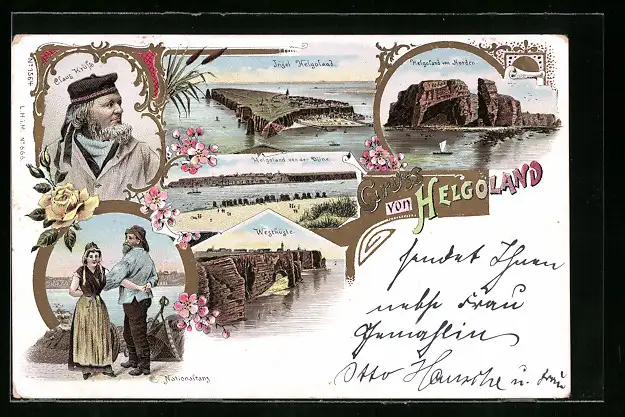 No 15614
L.H.i.M. No 666.
Claus Krüss
Insel Helgoland
Helgoland von Norden
Helgoland von der Düne
Westküste
Nationaltanz
Gruss
von HELGOLAND
sendet Ihnen
nebst Frau
Gemahlin
Otto u. Frau